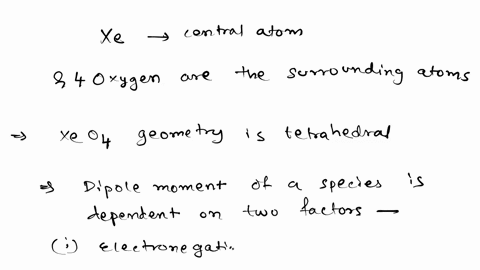 Xe → central atom
& 4 Oxygen are the surrounding atoms
⇒ XeO4 geometry is tetrahedral
⇒ Dipole moment of a species is
dependent on two factors —
(i) electronegati